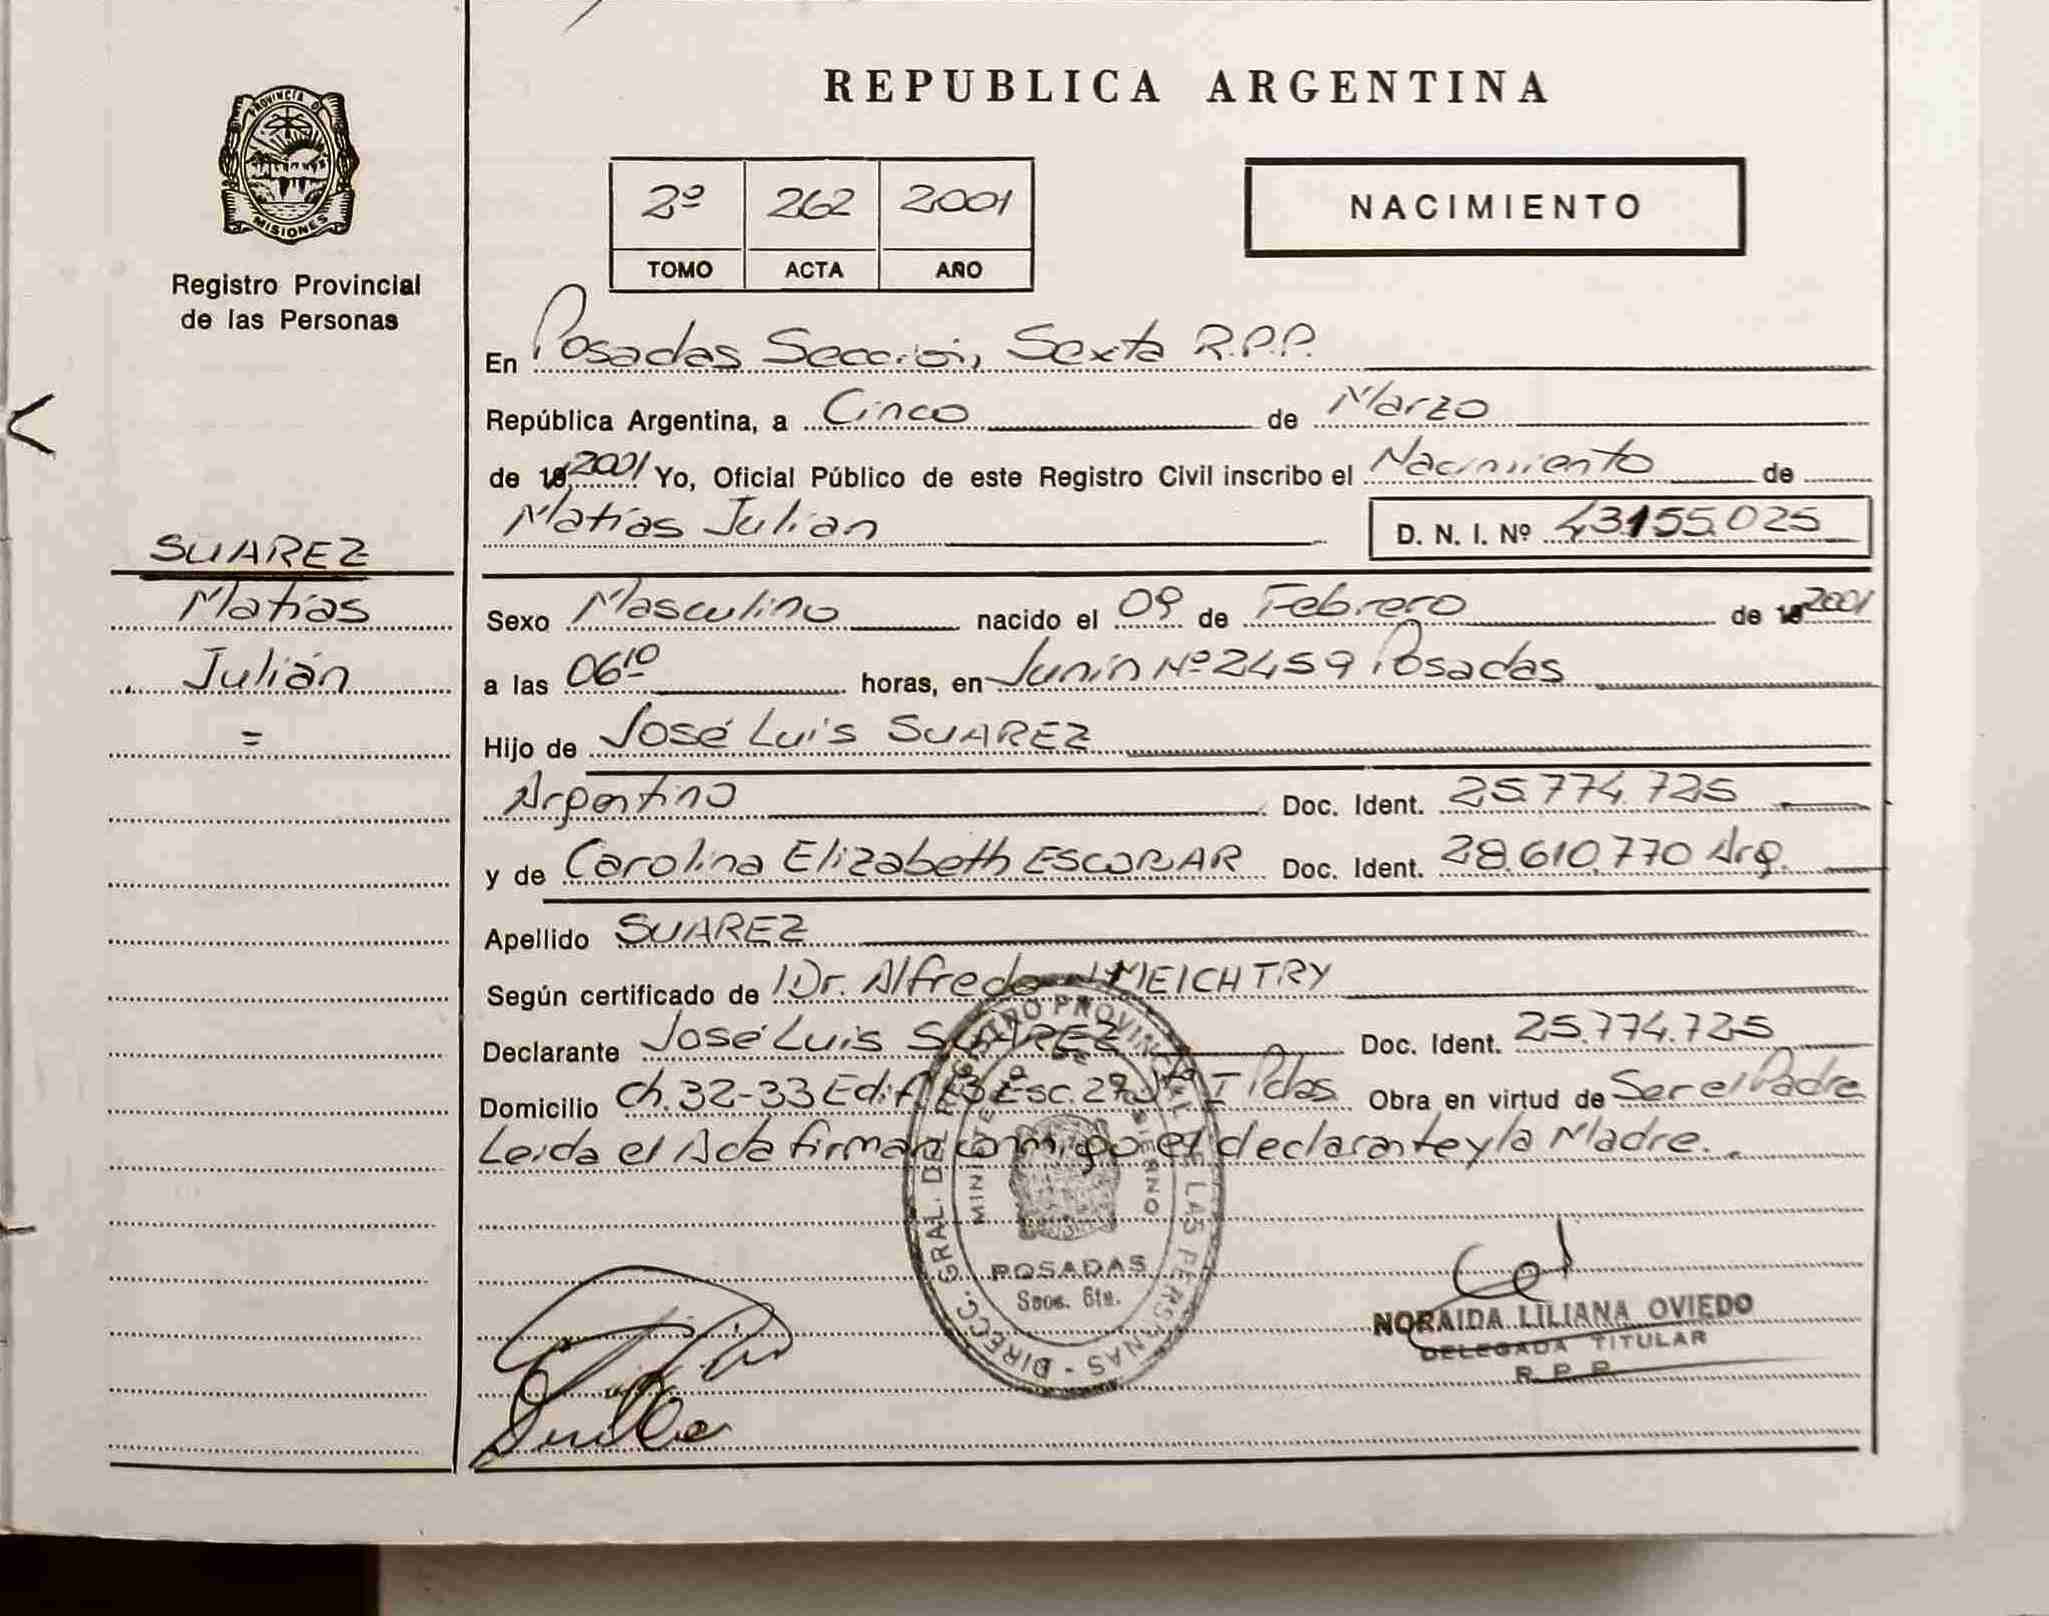 REPUBLICA ARGENTINA
PROVINCIA DE
MISIONES
Registro Provincial
de las Personas
2º 262 2001
TOMO ACTA AÑO
NACIMIENTO
En Posadas Sección, Sexta R.P.P.
República Argentina, a Cinco de Marzo
de 19 2001 Yo, Oficial Público de este Registro Civil inscribo el Nacimiento de
Matías Julian D. N. I. Nº 43155.025
SUAREZ
Matías
Julián
=
Sexo Masculino nacido el 09 de Febrero de 19 2001
a las 06¹⁰ horas, en Junín Nº 2459 Posadas
Hijo de José Luis SUAREZ
Argentino Doc. Ident. 25.774.725
y de Carolina Elizabeth ESCOBAR Doc. Ident. 28.610.770 Arg.
Apellido SUAREZ
Según certificado de Dr. Alfredo MEICHTRY
Declarante José Luis SUAREZ Doc. Ident. 25.774.725
Domicilio Ch. 32-33 Edif. Esc. 27 I Pdas Obra en virtud de Ser el Padre
Leida el Acta firman conmigo el declarante y la Madre.
DIRECC. GRAL. DEL REGISTRO PROVINCIAL DE LAS PERSONAS
MINISTERIO DE GOBIERNO
POSADAS
Secc. 6ta.
NORAIDA LILIANA OVIEDO
DELEGADA TITULAR
R. P. P.